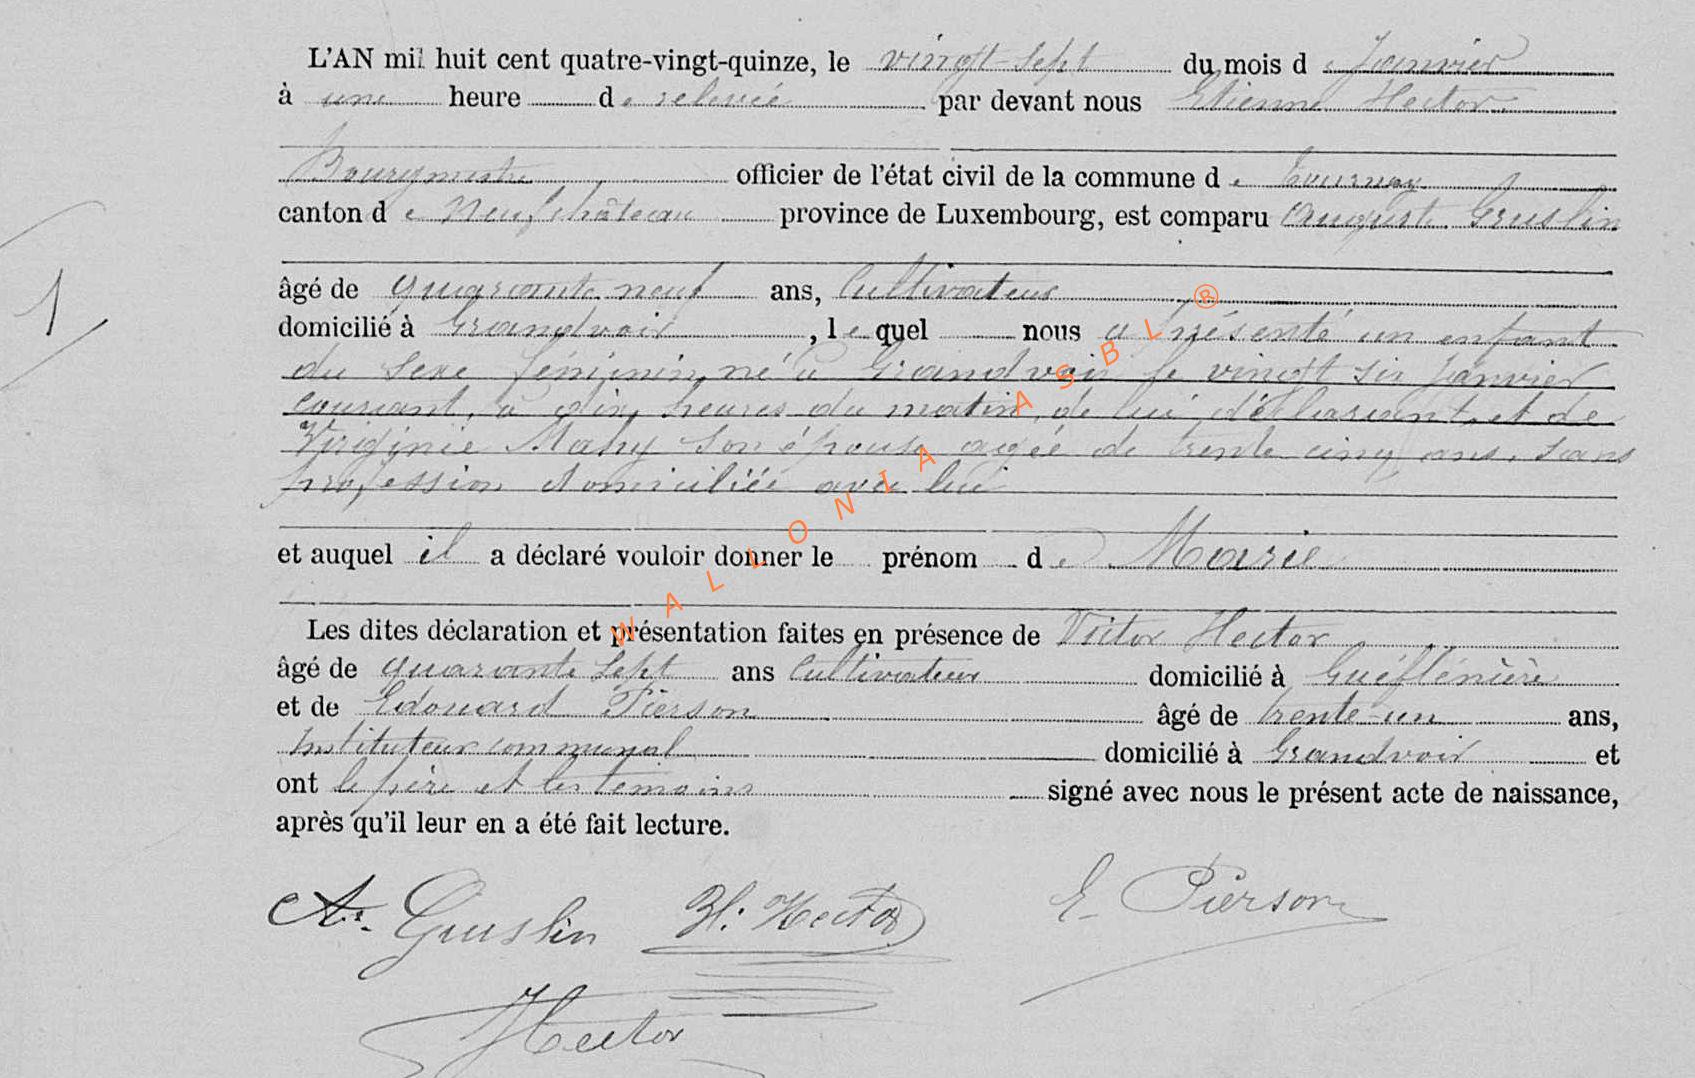 L'AN mil huit cent quatre-vingt-quinze, le vingt-sept du mois de Janvier
à une heure de relevée par devant nous Etienne Hector
Bourgmestre officier de l'état civil de la commune de Tournay
canton de Neufchâteau province de Luxembourg, est comparu Auguste Gruslin
âgé de quarante neuf ans, Cultivateur
domicilié à Grandvoir, lequel nous a présenté un enfant
du sexe féminin, né à Grandvoir le vingt six Janvier
courant, à dix heures du matin, de lui déclarant, et de
Virginie Mahy son épouse agée de trente cinq ans, sans
profession domiciliée avec lui
et auquel il a déclaré vouloir donner le prénom de Marie
Les dites déclaration et présentation faites en présence de Victor Hector
âgé de quarante sept ans Cultivateur domicilié à
et de Edouard Pierson âgé de trente-un ans,
Instituteur communal domicilié à Grandvoir et
ont le père et les témoins signé avec nous le présent acte de naissance,
après qu'il leur en a été fait lecture.
1
A. Gruslin V. Hector E. Pierson
Hector
WALLONIA ASBL ®